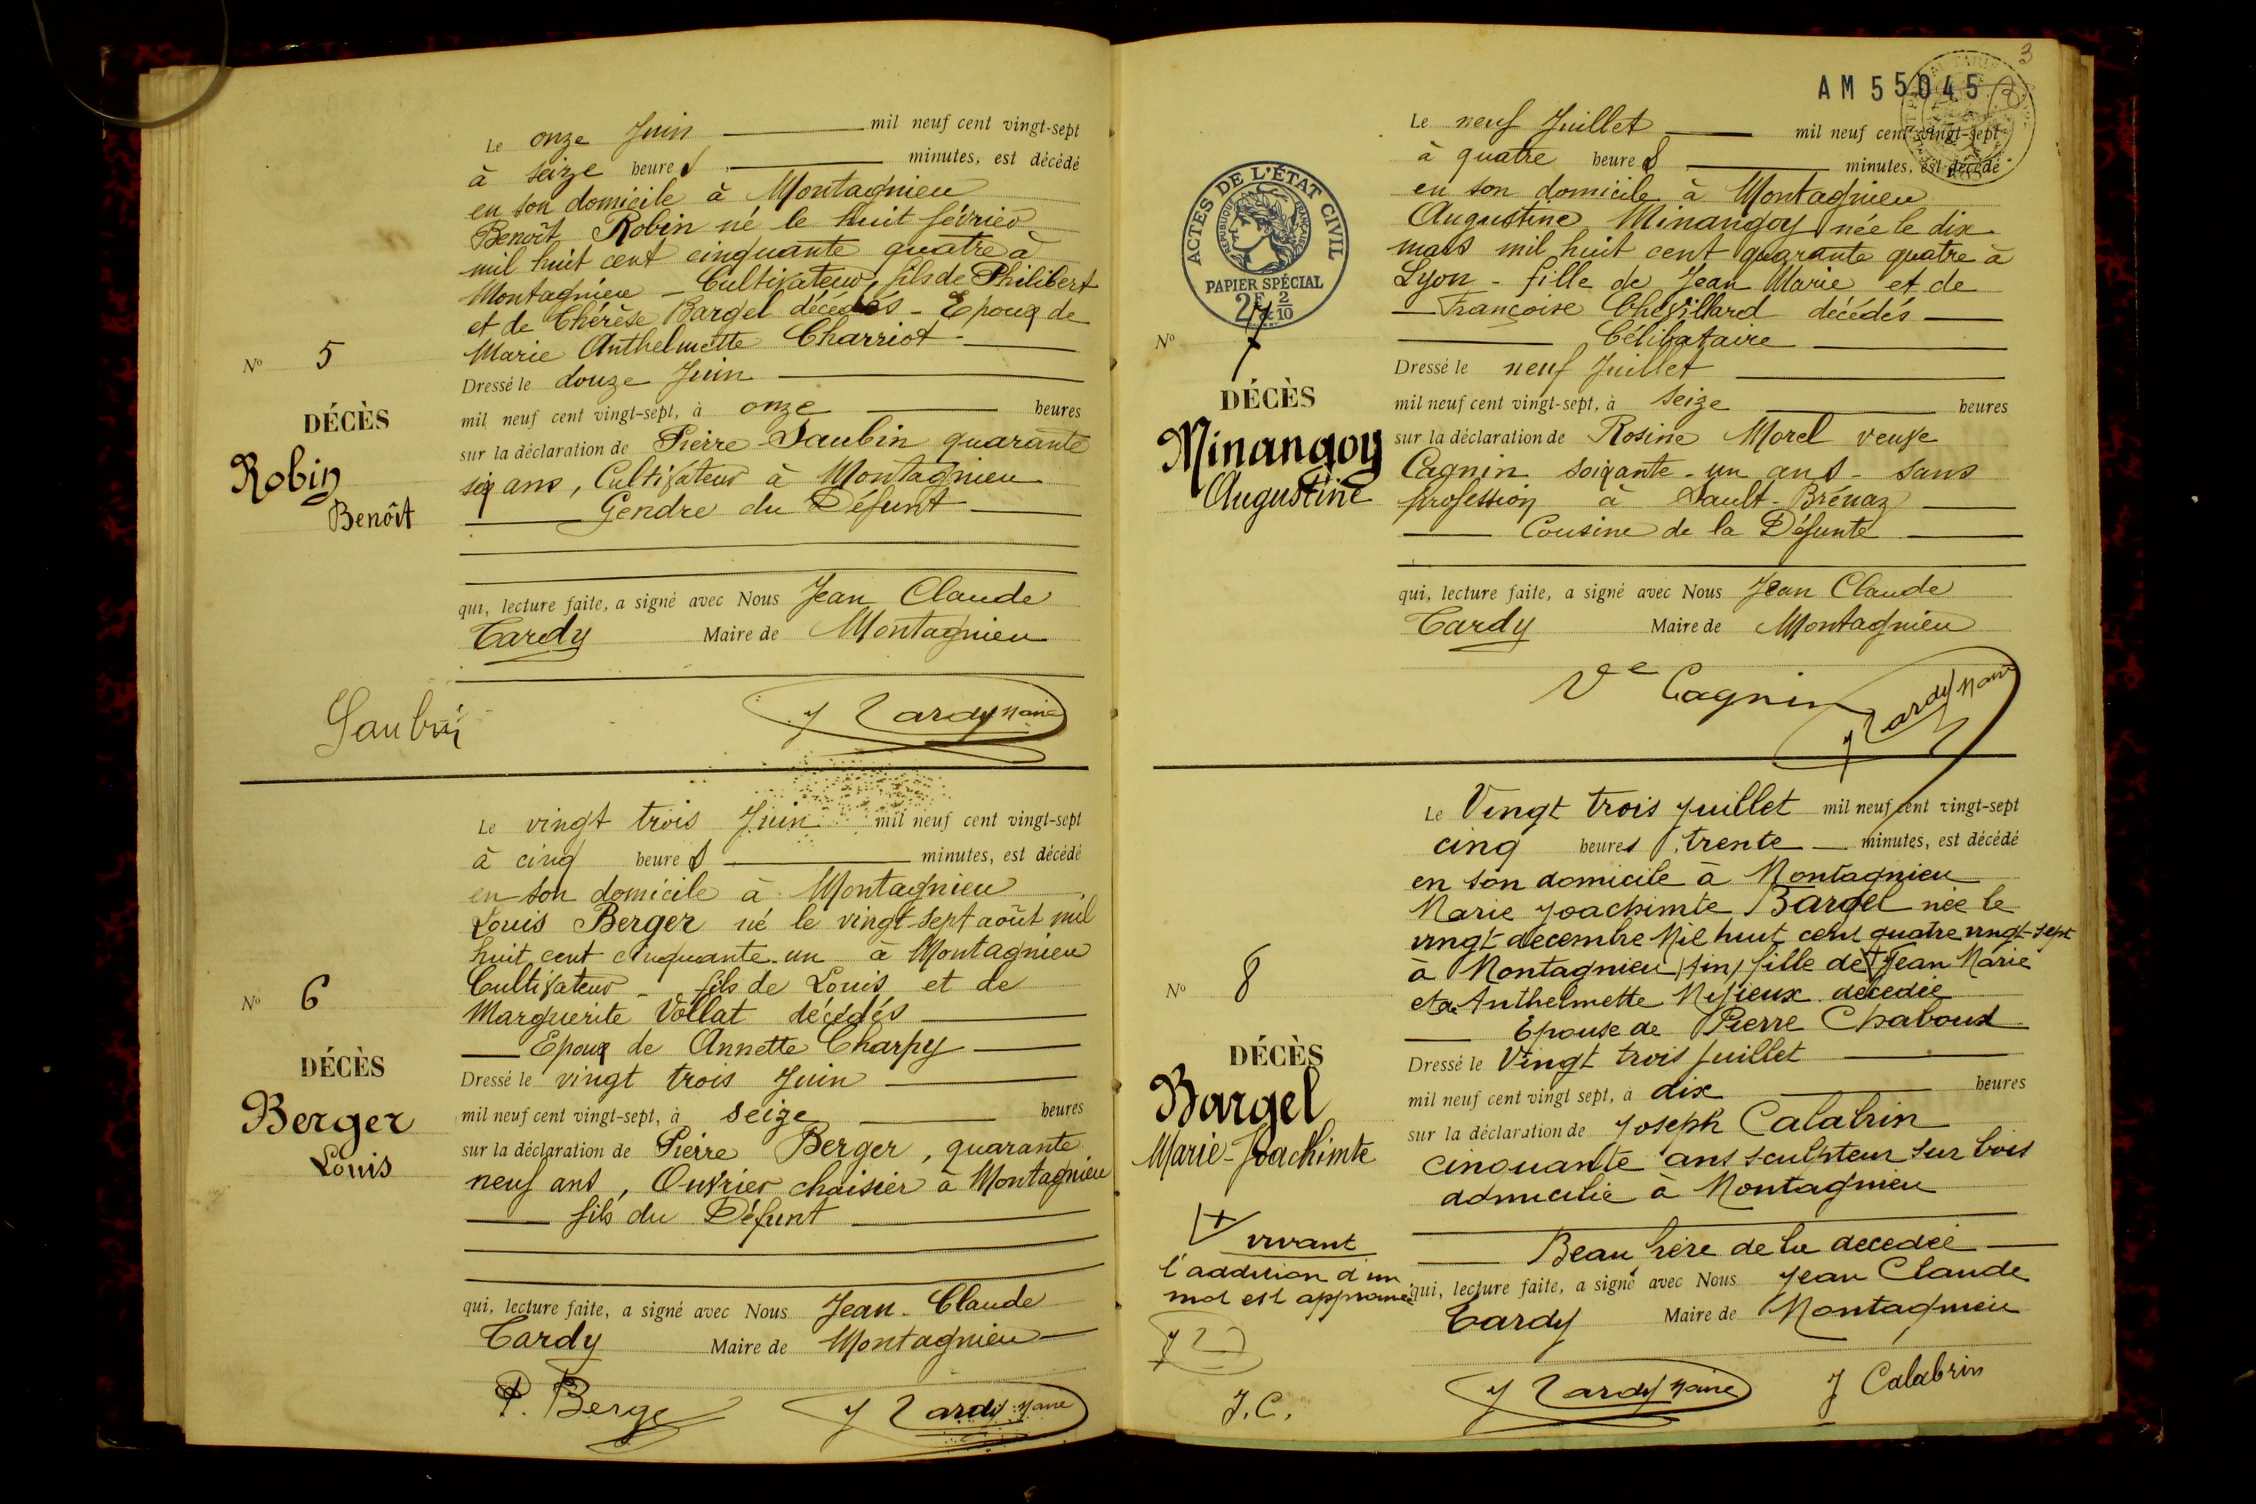 Le onze Juin mil neuf cent vingt-sept
à seize heures minutes, est décédé
en son domicile à Montagnieu
Benoît Robin né le huit février
mil huit cent cinquante quatre à
Montagnieu - Cultivateur, fils de Philibert
et de Thérèse Bargel décédés - Epoux de
Marie Anthelmette Charriot -
Dressé le douze Juin
mil neuf cent vingt-sept, à onze heures
sur la déclaration de Pierre Saubin quarante
six ans, Cultivateur à Montagnieu
Gendre du Défunt
qui, lecture faite, a signé avec Nous Jean Claude
Tardy Maire de Montagnieu
Saubin
J Tardy Maire
No 5
DÉCÈS
Robin
Benoît
Le vingt trois Juin mil neuf cent vingt-sept
à cinq heures minutes, est décédé
en son domicile à Montagnieu
Louis Berger né le vingt-sept août mil
huit cent cinquante-un à Montagnieu
Cultivateur - fils de Louis et de
Marguerite Vollat décédés
Epoux de Annette Charpy
Dressé le vingt trois Juin
mil neuf cent vingt-sept, à seize heures
sur la déclaration de Pierre Berger, quarante
neuf ans, Ouvrier chaisier à Montagnieu
fils du Défunt
qui, lecture faite, a signé avec Nous Jean-Claude
Tardy Maire de Montagnieu
P. Berger
J Tardy Maire
No 6
DÉCÈS
Berger
Louis
3
AM 55045
ACTES DE L'ÉTAT CIVIL
RÉPUBLIQUE FRANÇAISE
PAPIER SPÉCIAL
2F & 2/10
Le neuf Juillet mil neuf cent vingt-sept
à quatre heures minutes, est décédé
en son domicile à Montagnieu
Augustine Minangoy née le dix
mars mil huit cent quarante quatre à
Lyon - fille de Jean Marie et de
Françoise Chevillard décédés
Célibataire
Dressé le neuf Juillet
mil neuf cent vingt-sept, à seize heures
sur la déclaration de Rosine Morel veuve
Cagnin soixante-un ans - sans
profession à Sault-Brénaz
Cousine de la Défunte
qui, lecture faite, a signé avec Nous Jean Claude
Tardy Maire de Montagnieu
Ve Cagnin
J Tardy Maire
No 7
DÉCÈS
Minangoy
Augustine
Le Vingt trois Juillet mil neuf cent vingt-sept
cinq heures trente minutes, est décédé
en son domicile à Montagnieu
Marie Joachimte Bargel née le
vingt decembre Mil huit cent quatre vingt-sept
à Montagnieu (Ain) fille de + Jean Marie
et de Anthelmette decedée
Epouse de Pierre Chaboud
Dressé le Vingt trois Juillet
mil neuf cent vingt sept, à dix heures
sur la déclaration de Joseph Calabrin
cinquante ans sculpteur sur bois
domicilie à Montagnieu
Beau frère de la decedée
qui, lecture faite, a signé avec Nous Jean Claude
Tardy Maire de Montagnieu
J Tardy Maire
J Calabrin
No 8
DÉCÈS
Bargel
Marie-Joachimte
+ vivant
l'addition d'un
mot est approuvée
J T
J.C.